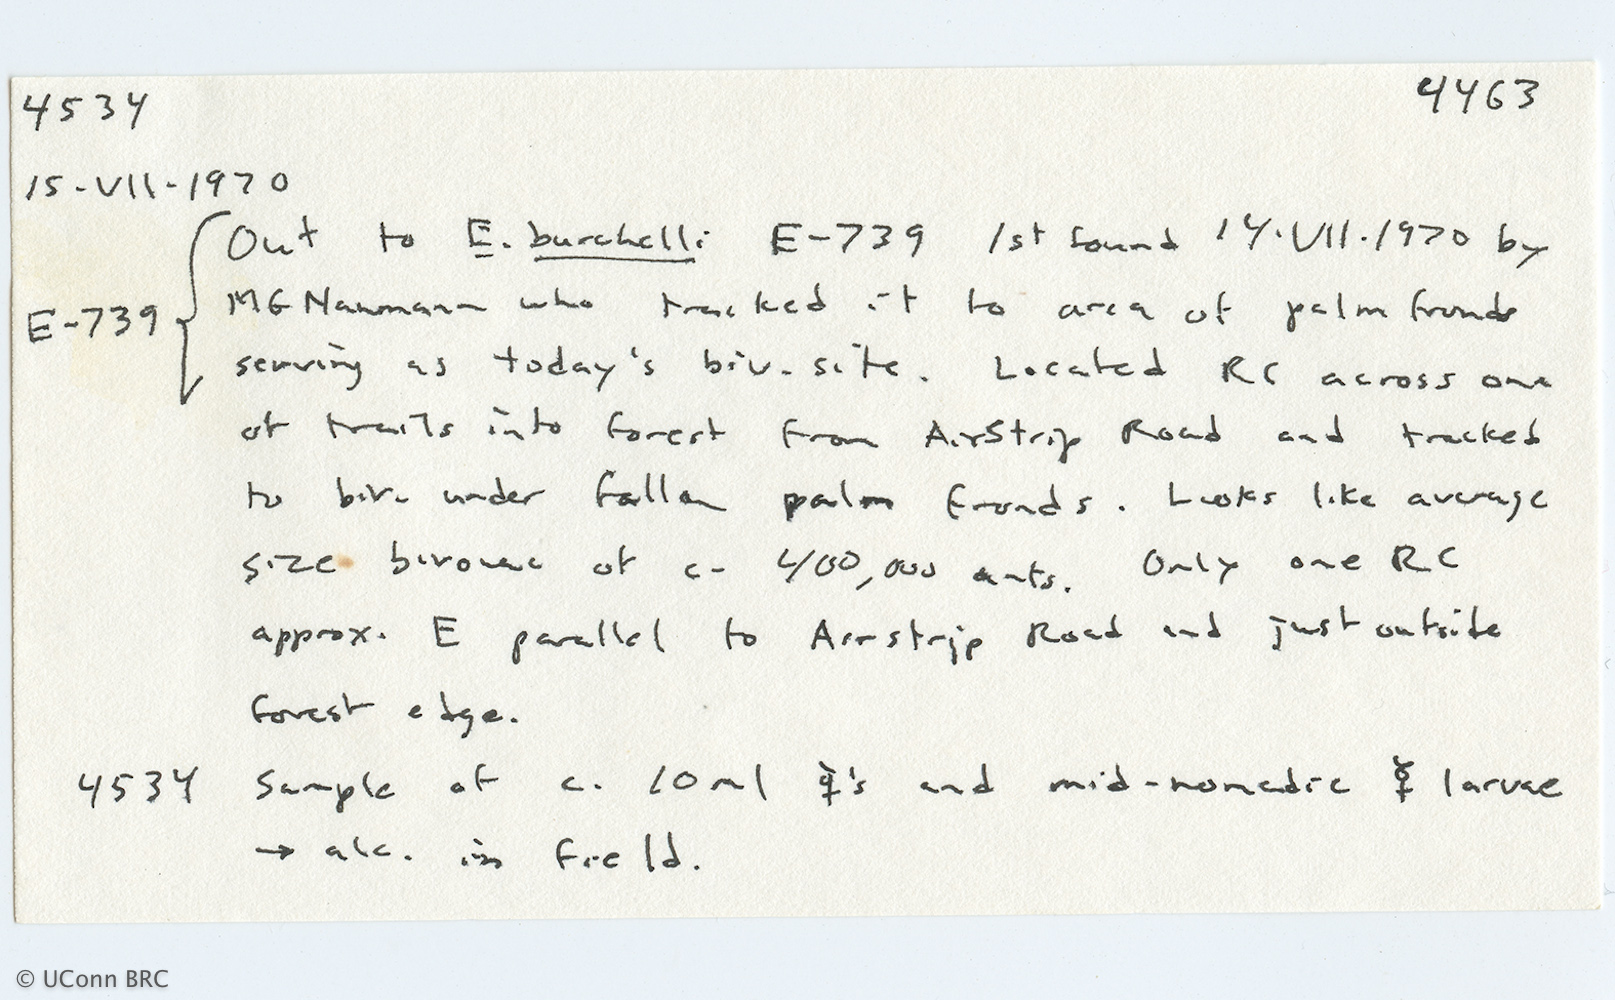 4534 4463
15-VII-1970
Out to E. burchelli E-739 1st found 14.VII.1970 by
E-739 MG Naumann who tracked it to area of palm fronds
serving as today's biv. site. Located RC across one
of trails into forest from AirStrip Road and tracked
to biv. under fallen palm fronds. Looks like average
size bivouac of c. 400,000 ants. Only one RC
approx. E parallel to Airstrip Road and just outside
forest edge.
4534 Sample of c. 10ml ☿'s and mid-nomadic ☿ larvae
→ alc. in field.
© UConn BRC